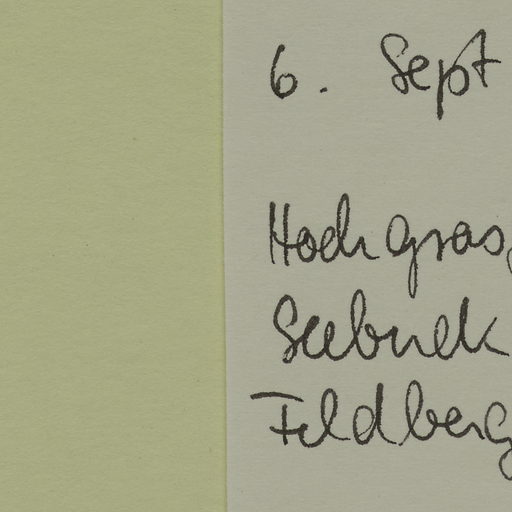 6. Sept
Hochgras
Seebuck
Feldberg